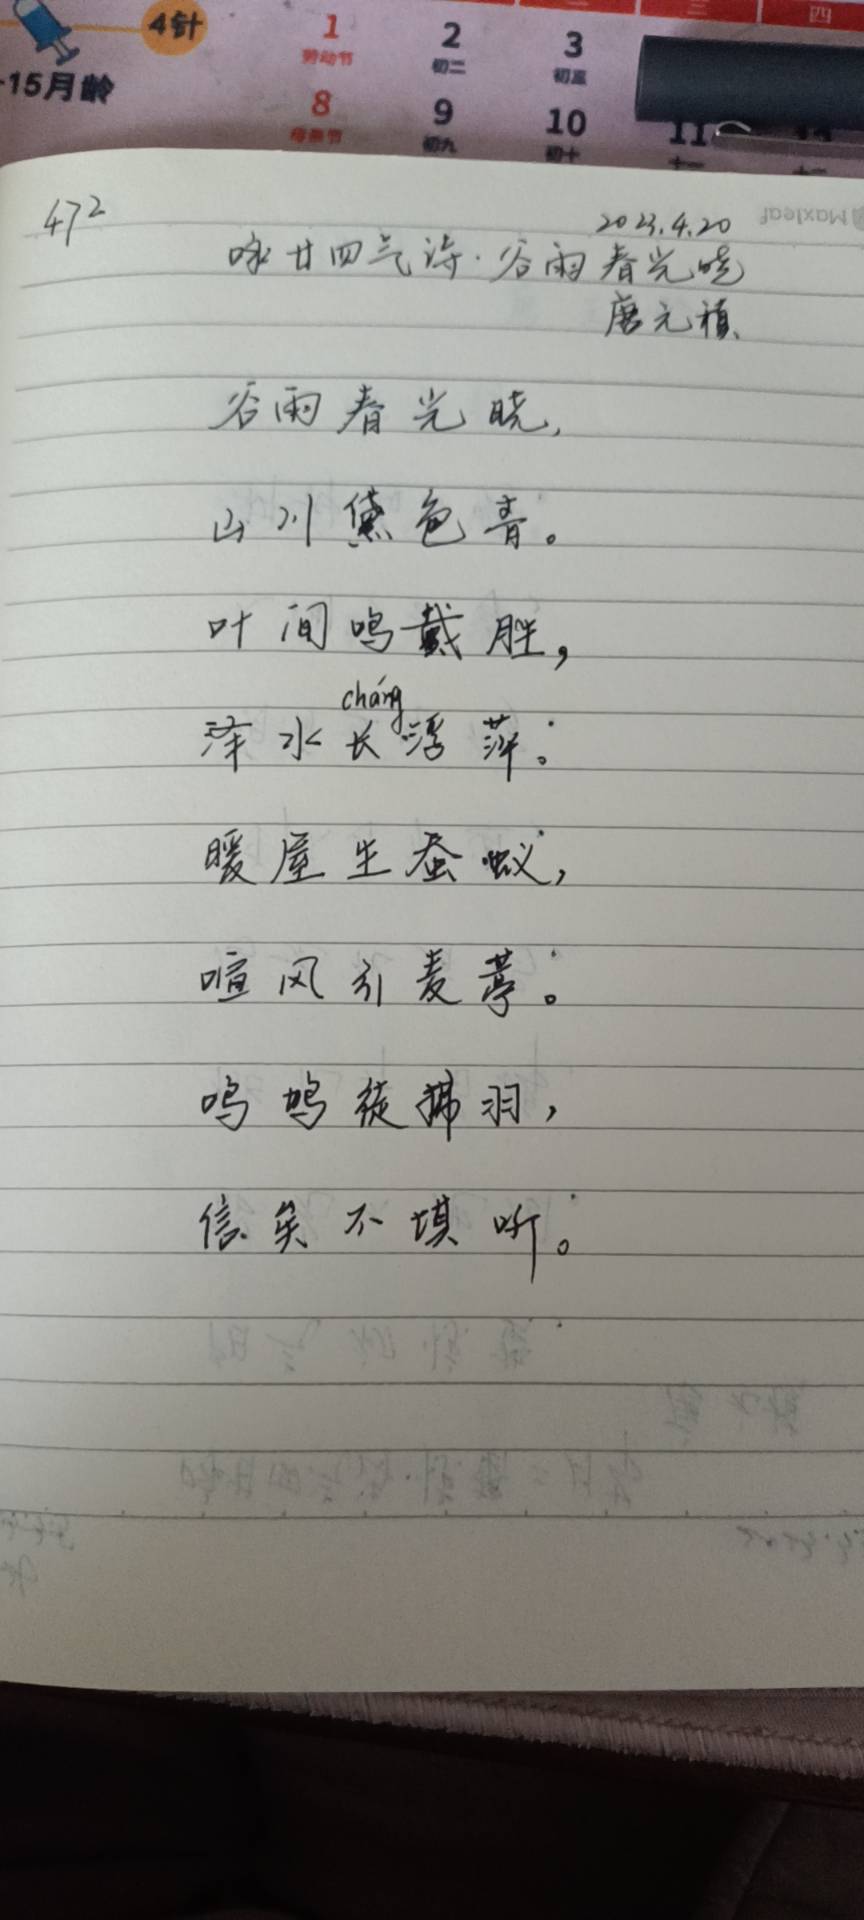 4针
-15月龄
1 2 3
劳动节 初二 初三
三 四
8 9 10 11
母亲节 初九 初十 十一
Maxleaf
47²
2023.4.20
咏廿四气诗·谷雨春光晓
唐元稹
谷雨春光晓,
山川黛色青。
叶间鸣戴胜,
cháng
泽水长浮萍。
暖屋生蚕蚁,
喧风引麦葶。
鸣鸠徒拂羽,
信矣不堪听。